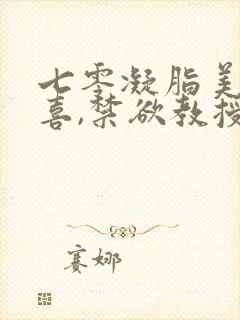 七零凝脂美
喜,禁欲教授
赛娜